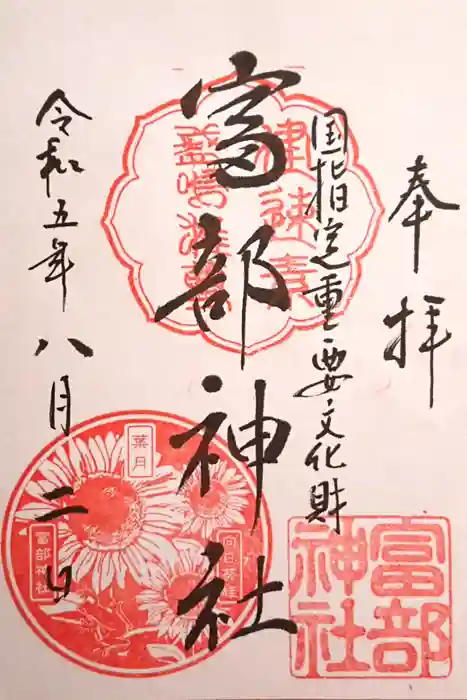 奉拝
国指定重要文化財
富部神社
令和五年八月二日
建速素
盞嗚尊
葉月
向日葵
富部神社
富部
神社